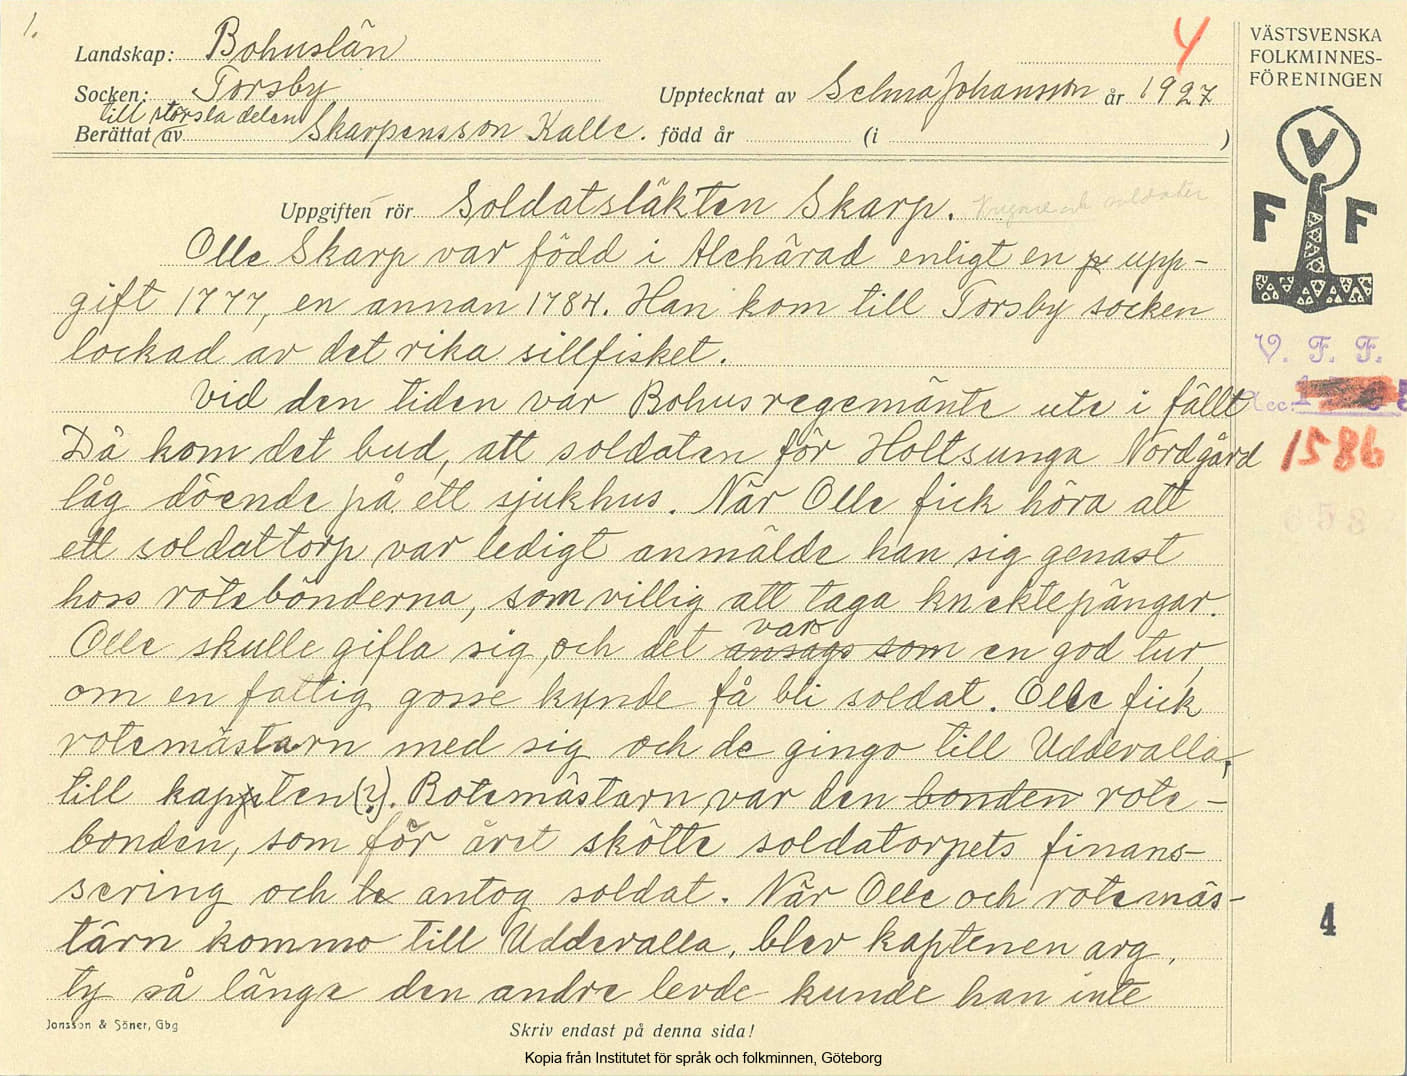 1.
Landskap: Bohuslän
4
Socken: Torsby
Upptecknat av Selma Johansson år 1927
till största delen
Berättat av Skarpensson Kalle. född år (i )
VÄSTSVENSKA
FOLKMINNES-
FÖRENINGEN
V
F F
Uppgiften rör Soldatsläkten Skarp.
Olle Skarp var född i Alehärad enligt en upp-
gift 1777, en annan 1784. Han kom till Torsby socken
lockad av det rika sillfisket.
Vid den tiden var Bohusregemänte ute i fällt
Då kom det bud, att soldaten för Holtsunga Nordgård
låg döende på ett sjukhus. När Olle fick höra att
ett soldattorp var ledigt anmälde han sig genast
hoss rotebönderna, som villig att taga knektepängar.
var
Olle skulle gifta sig, och det ansågs som en god tur,
om en fattig gosse kunde få bli soldat. Olle fick
rotemästarn med sig och de gingo till Uddevalla,
till kapten (?). Rotemästarn var den bonden rote-
bonden, som för året skötte soldatorpets finans-
sering och antog soldat. När Olle och rotemäs-
tarn kommo till Uddevalla, blev kaptenen arg,
ty så länge den andre levde kunde han inte
V. F. F.
Acc:
1586
658
4
Jonsson & Söner, Gbg
Skriv endast på denna sida!
Kopia från Institutet för språk och folkminnen, Göteborg